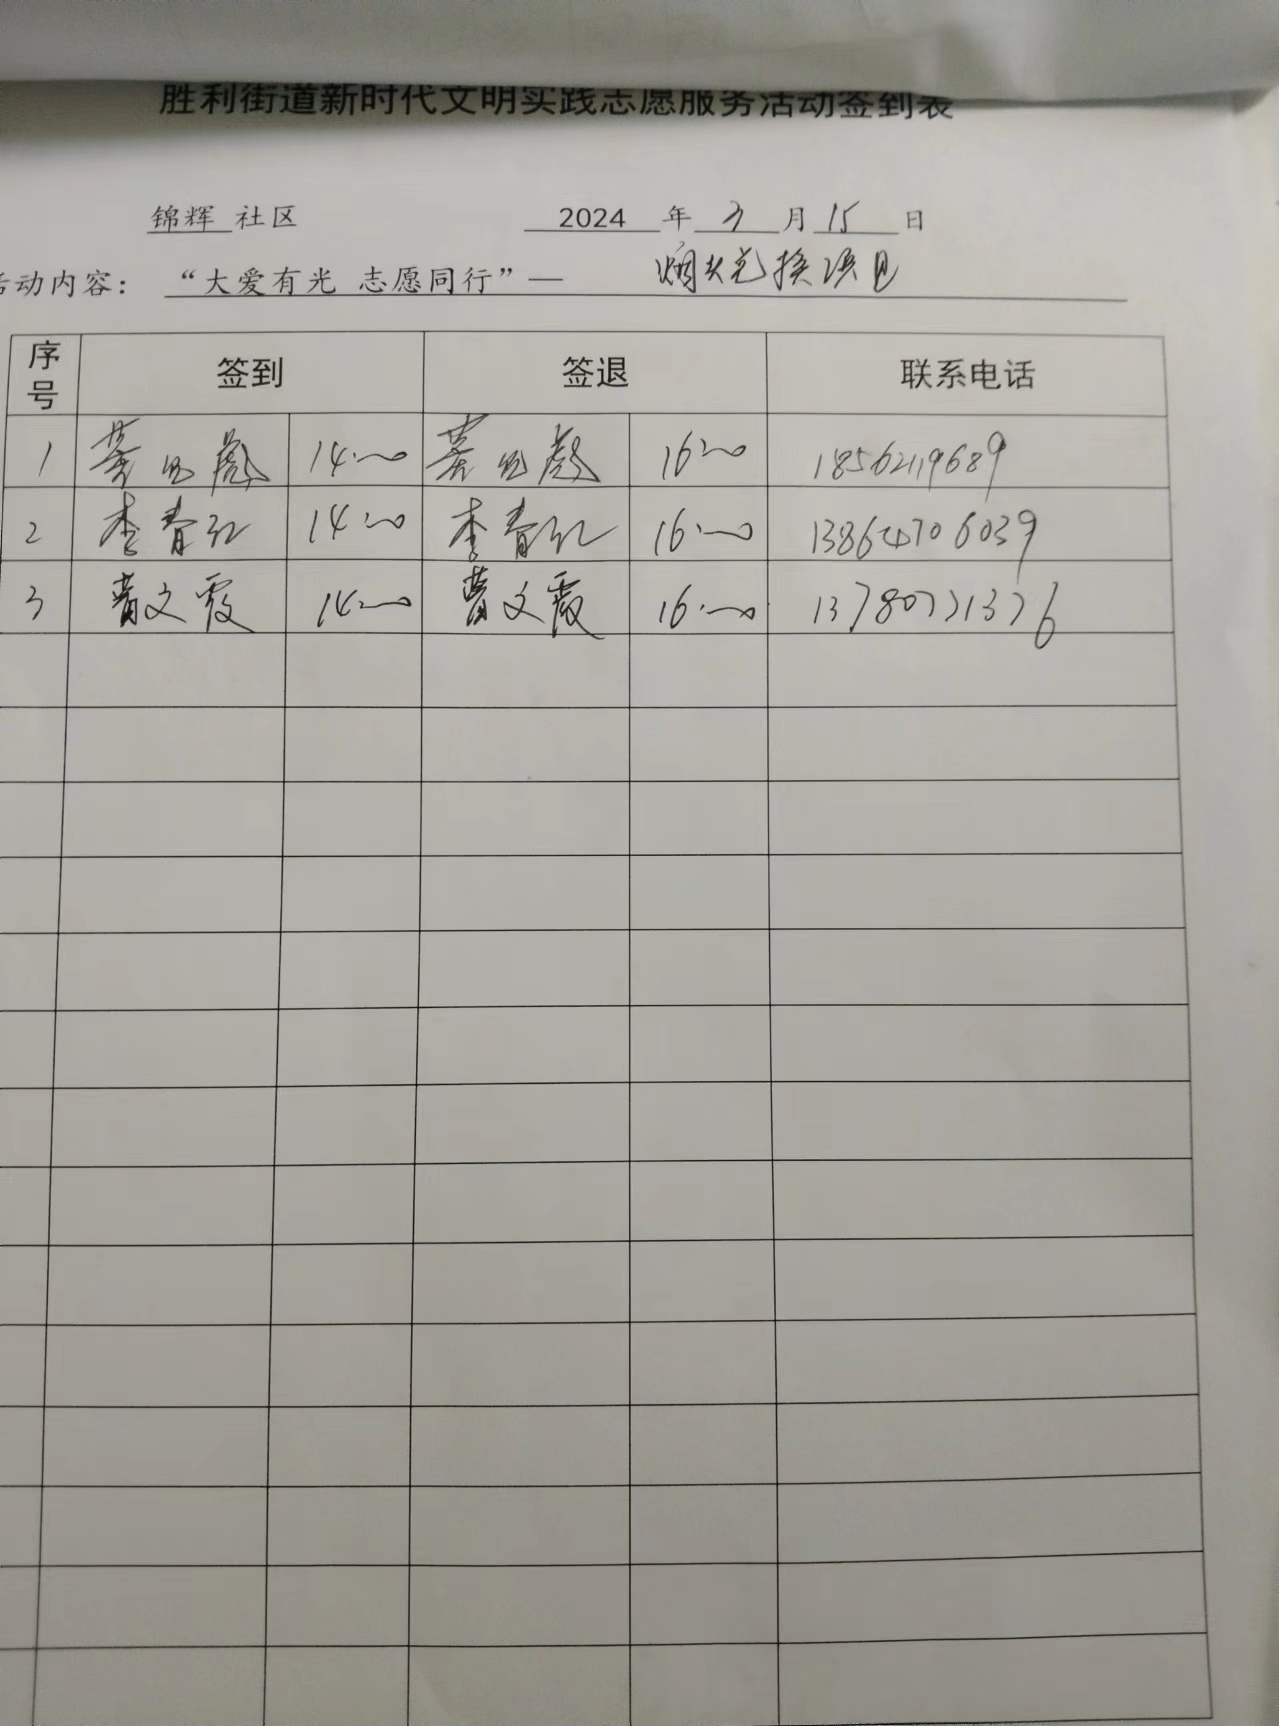 胜利街道新时代文明实践志愿服务活动签到表
锦辉 社区 2024 年 3 月 15 日
活动内容：“大爱有光 志愿同行”— 烟头兑换项目
序号 签到 签退 联系电话
1 14:00 16:00 18562119689
2 李春红 14:00 李春红 16:00 13864706039
3 黄文霞 14:00 黄文霞 16:00 13780771376